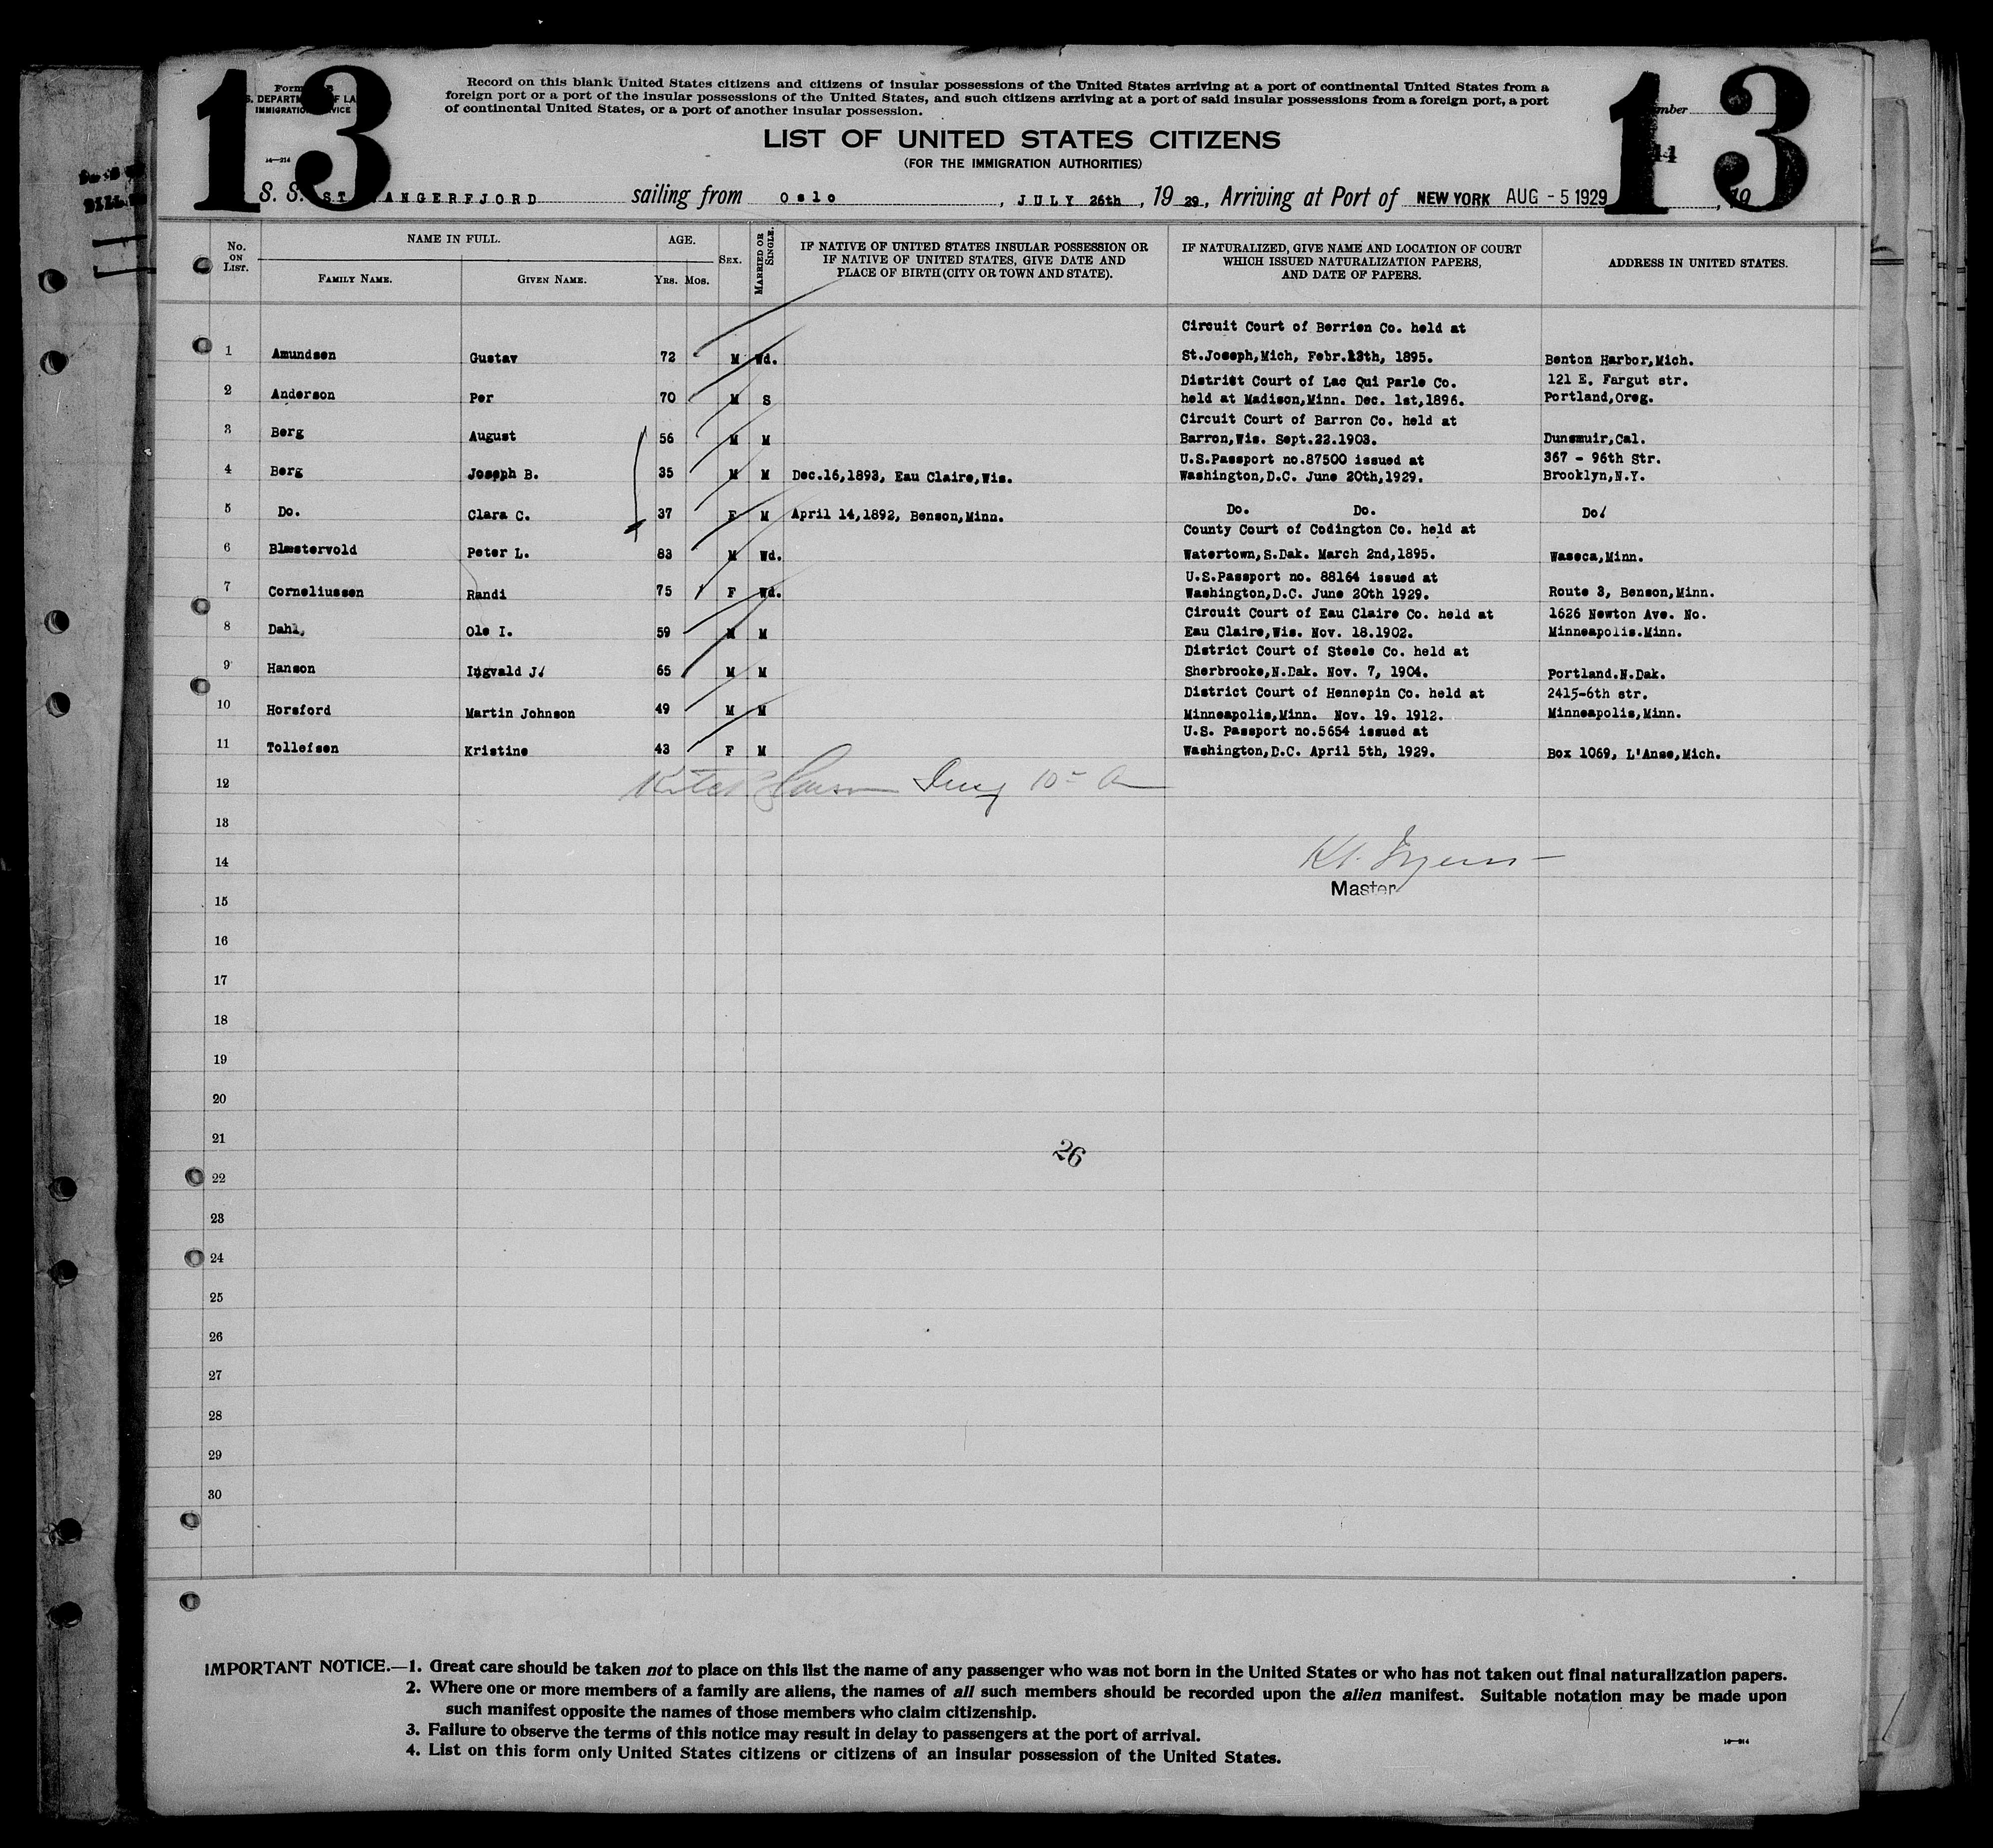 13
13
Record on this blank United States citizens and citizens of insular possessions of the United States arriving at a port of continental United States from a
foreign port or a port of the insular possessions of the United States, and such citizens arriving at a port of said insular possessions from a foreign port, a port
of continental United States, or a port of another insular possession.
LIST OF UNITED STATES CITIZENS
(FOR THE IMMIGRATION AUTHORITIES)
S. S. ST ANGERFJORD sailing from Oslo, JULY 26th, 19 29, Arriving at Port of NEW YORK AUG - 5 1929
No. ON LIST.
NAME IN FULL.
FAMILY NAME. GIVEN NAME.
AGE.
YRS. MOS.
SEX.
MARRIED OR SINGLE.
IF NATIVE OF UNITED STATES INSULAR POSSESSION OR
IF NATIVE OF UNITED STATES, GIVE DATE AND
PLACE OF BIRTH (CITY OR TOWN AND STATE).
IF NATURALIZED, GIVE NAME AND LOCATION OF COURT
WHICH ISSUED NATURALIZATION PAPERS,
AND DATE OF PAPERS.
ADDRESS IN UNITED STATES.
Circuit Court of Berrien Co. held at
1 Amundsen Gustav 72 M Wd. St.Joseph,Mich, Febr.13th, 1895. Benton Harbor,Mich.
District Court of Lac Qui Parle Co. 121 E. Fargut str.
2 Anderson Per 70 M S held at Madison,Minn. Dec. 1st,1896. Portland,Oreg.
Circuit Court of Barron Co. held at
3 Berg August 56 M M Barron,Wis. Sept.22.1903. Dunsmuir,Cal.
U.S.Passport no.87500 issued at 367 - 96th Str.
4 Berg Joseph B. 35 M M Dec.16,1893, Eau Claire,Wis. Washington,D.C. June 20th,1929. Brooklyn,N.Y.
5 Do. Clara C. 37 F M April 14,1892, Benson,Minn. Do. Do. Do.
County Court of Codington Co. held at
6 Blæstervold Peter L. 83 M Wd. Watertown,S.Dak. March 2nd,1895. Waseca,Minn.
U.S.Passport no. 88164 issued at
7 Corneliussen Randi 75 F Wd. Washington,D.C. June 20th 1929. Route 3, Benson,Minn.
Circuit Court of Eau Claire Co. held at 1626 Newton Ave. No.
8 Dahl, Ole I. 59 M M Eau Claire,Wis. Nov. 18.1902. Minneapolis.Minn.
District Court of Steele Co. held at
9 Hanson Ingvald J. 65 M M Sherbrooke,N.Dak. Nov. 7, 1904. Portland.N.Dak.
District Court of Hennepin Co. held at 2415-6th str.
10 Horsford Martin Johnson 49 M M Minneapolis,Minn. Nov. 19. 1912. Minneapolis,Minn.
U.S. Passport no.5654 issued at
11 Tollefsen Kristine 43 F M Washington,D.C. April 5th, 1929. Box 1069, L'Anse,Mich.
12
13
14
Master
15
16
17
18
19
20
21
26
22
23
24
25
26
27
28
29
30
IMPORTANT NOTICE.—1. Great care should be taken not to place on this list the name of any passenger who was not born in the United States or who has not taken out final naturalization papers.
2. Where one or more members of a family are aliens, the names of all such members should be recorded upon the alien manifest. Suitable notation may be made upon
such manifest opposite the names of those members who claim citizenship.
3. Failure to observe the terms of this notice may result in delay to passengers at the port of arrival.
4. List on this form only United States citizens or citizens of an insular possession of the United States.